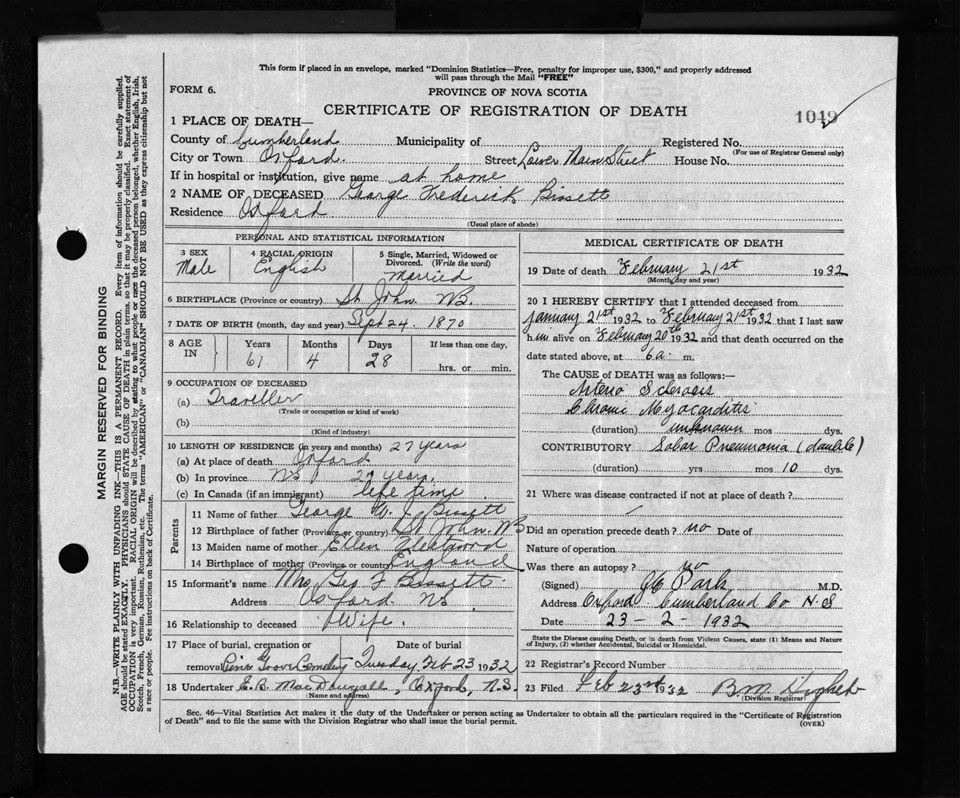 This form if placed in an envelope, marked "Dominion Statistics—Free, penalty for improper use, $300," and properly addressed
will pass through the Mail "FREE"
FORM 6.
PROVINCE OF NOVA SCOTIA
CERTIFICATE OF REGISTRATION OF DEATH
1049
1 PLACE OF DEATH—
County of Cumberland Municipality of Registered No.
(For use of Registrar General only)
City or Town Oxford. Street Lower Main Street House No.
If in hospital or institution, give name at home
2 NAME OF DECEASED George Frederick Bissett
Residence Oxford
(Usual place of abode)
PERSONAL AND STATISTICAL INFORMATION
3 SEX 4 RACIAL ORIGIN 5 Single, Married, Widowed or Divorced. (Write the word)
Male English Married
6 BIRTHPLACE (Province or country) St. John NB.
7 DATE OF BIRTH (month, day and year) Sept 24. 1870
8 AGE IN Years Months Days If less than one day,
61 4 28 hrs. or min.
9 OCCUPATION OF DECEASED
(a) Traveller
(Trade or occupation or kind of work)
(b)
(Kind of industry)
10 LENGTH OF RESIDENCE (in years and months) 27 years
(a) At place of death Oxford
(b) In province NS 27 years.
(c) In Canada (if an immigrant) life time
Parents
11 Name of father George W. J. Bissett
12 Birthplace of father (Province or country) St. John. NB
13 Maiden name of mother Ellen
14 Birthplace of mother (Province or country) England
15 Informant's name Mrs. Geo F Bissett.
Address Oxford. NS
16 Relationship to deceased Wife.
17 Place of burial, cremation or removal Date of burial
Pine Grove Cemetery Tuesday, Feb 23 1932
18 Undertaker E. B. MacDougall, Oxford, N.S.
(Name and address)
MEDICAL CERTIFICATE OF DEATH
19 Date of death February 21st 1932
(Month, day and year)
20 I HEREBY CERTIFY that I attended deceased from
January 21st 1932 to February 21st 1932 that I last saw
him alive on February 20th 1932 and that death occurred on the
date stated above, at 6 a. m.
The CAUSE OF DEATH was as follows:—
Arterio Sclerosis
Chronic Myocarditis
(duration) unknown mos dys.
CONTRIBUTORY Lobar Pneumonia (double)
(duration) yrs mos 10 dys.
21 Where was disease contracted if not at place of death?
Did an operation precede death? no Date of
Nature of operation
Was there an autopsy? no
(Signed) Park M.D.
Address Oxford Cumberland Co N.S
Date 23-2-1932
State the Disease causing Death, or in death from Violent Causes, state (1) Means and Nature
of Injury, (2) whether Accidental, Suicidal or Homicidal.
22 Registrar's Record Number
23 Filed Feb 23rd 1932 B.M.
(Division Registrar)
Sec. 46—Vital Statistics Act makes it the duty of the Undertaker or person acting as Undertaker to obtain all the particulars required in the "Certificate of Registration
of Death" and to file the same with the Division Registrar who shall issue the burial permit.
(OVER)
MARGIN RESERVED FOR BINDING
N.B.—WRITE PLAINLY WITH UNFADING INK—THIS IS A PERMANENT RECORD. Every item of information should be carefully supplied.
AGE should be stated EXACTLY. PHYSICIANS should STATE CAUSE OF DEATH in plain terms, so that it may be properly classified. Exact statement of
OCCUPATION is very important. RACIAL ORIGIN will be described by stating to what people or race the deceased person belonged, whether English, Irish,
Scotch, French, German, Russian, Ruthenian, etc. The terms "AMERICAN" or "CANADIAN" SHOULD NOT BE USED as they express citizenship but not
a race or people. Fee instructions on back of Certificate.